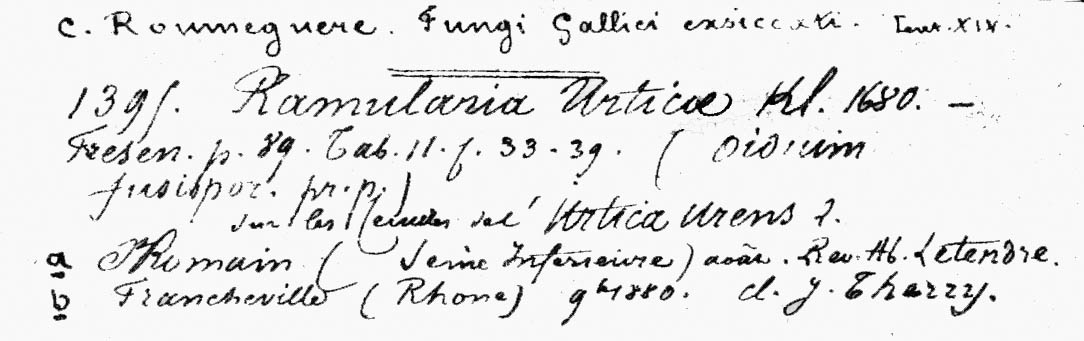 C. Roumeguere. Fungi Gallici exsiccati. Cent. XIV.
139 . Ramularia Urticæ Kl. 1680. —
Fresen. p. 89. Tab. 11. f. 33-39. ( Oidium
fusispor. pr. p. )
Sur les feuilles de l' Urtica Urens L.
a St Romain ( Seine Inferieure ) août. Rev. Ab. Letendre.
b Francheville ( Rhone ) 9bre 1880. cl. J. Therry.